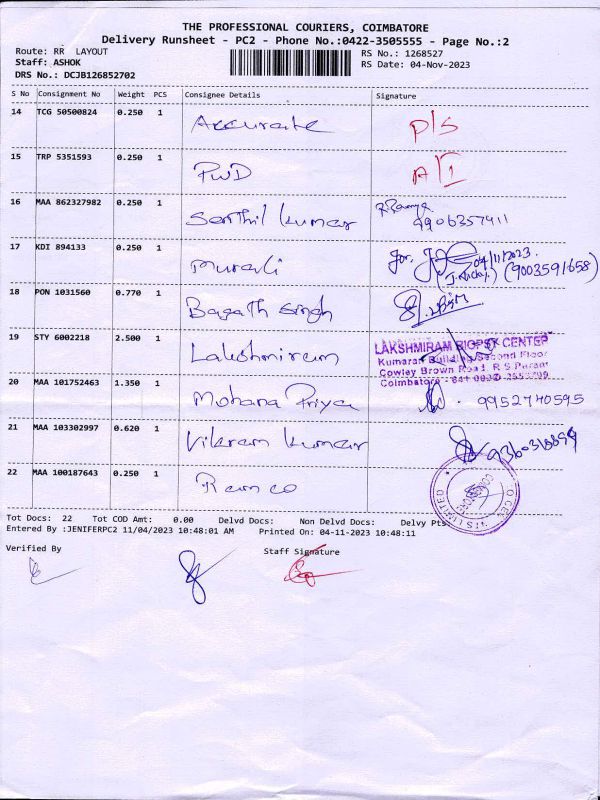 THE PROFESSIONAL COURIERS, COIMBATORE
Delivery Runsheet - PC2 - Phone No.:0422-3505555 - Page No.:2
Route: RR LAYOUT
RS No.: 1268527
Staff: ASHOK
RS Date: 04-Nov-2023
DRS No.: DCJB126852702
S No Consignment No Weight PCS Consignee Details Signature
14 TCG 50500824 0.250 1 Accurate P/S
15 TRP 5351593 0.250 1 PWD
16 MAA 862327982 0.250 1 Senthil kumar R.Ramya
9906357411
17 KDI 894133 0.250 1 Murali for. 04/11/2023.
(9003591658)
18 PON 1031560 0.770 1 Bagath Singh
19 STY 6002218 2.500 1 Lakshmiram LAKSHMIRAM BIOPSY CENTER
Kumaran Building Second Floor
Cowley Brown Road, R S Puram
Coimbatore - 641 002
20 MAA 101752463 1.350 1 Mohana Priya 9952740595
21 MAA 103302997 0.620 1 Vikram kumar
22 MAA 100187643 0.250 1 Ramco
Tot Docs: 22 Tot COD Amt: 0.00 Delvd Docs: Non Delvd Docs: Delvy Pts
Entered By :JENIFERPC2 11/04/2023 10:48:01 AM Printed On: 04-11-2023 10:48:11
Verified By Staff Signature